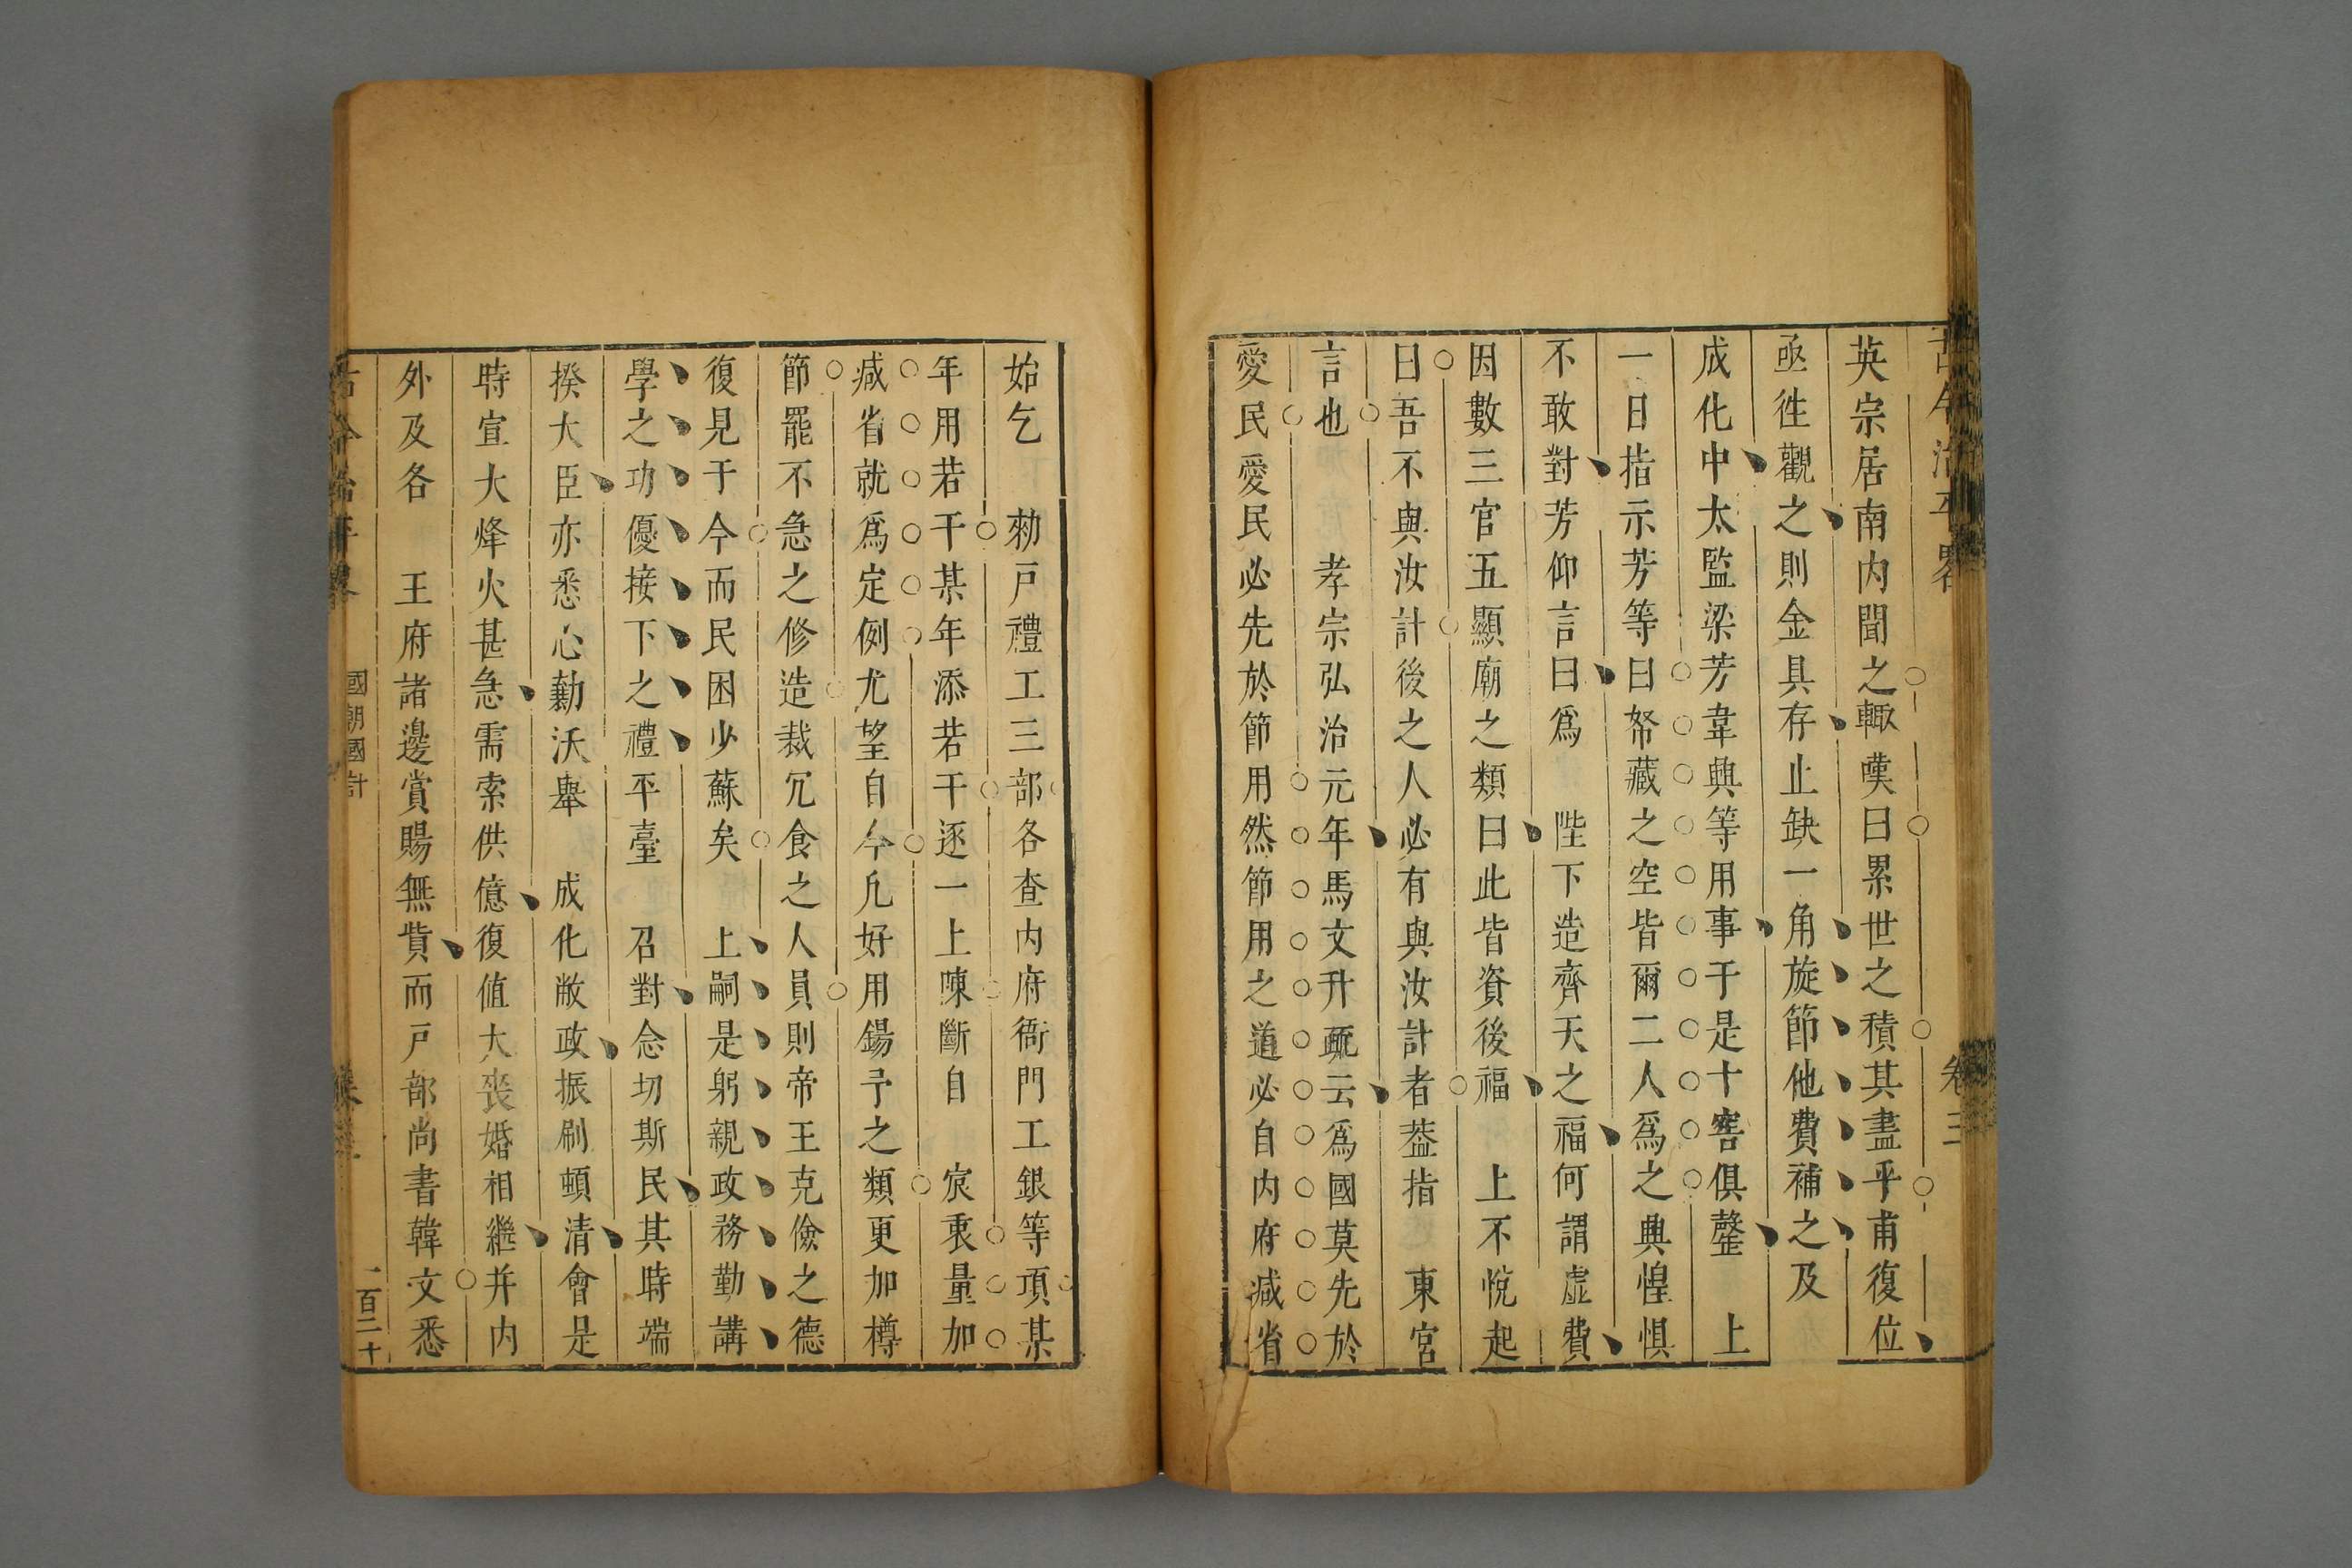 古今治平畧 卷三
英宗居南內聞之輙嘆曰累世之積其盡乎甫復位
亟徃觀之則金具存止缺一角旋節他費補之及
成化中太監梁芳韋興等用事于是十窖俱罄 上
一日指示芳等曰帑藏之空皆爾二人爲之興惶惧
不敢對芳仰言曰爲 陛下造齊天之福何謂虚費
因數三官五顯廟之類曰此皆資後福 上不悅起
曰吾不與汝計後之人必有與汝計者葢指 東宮
言也 孝宗弘治元年馬文升疏云爲國莫先於
愛民愛民必先於節用然節用之道必自内府減省
始乞 勑戸禮工三部各查内府衙門工銀等項某
年用若干某年添若干逐一上陳斷自 宸衷量加
减省就爲定例尤望自今凡好用錫予之類更加樽
節罷不急之修造裁冗食之人員則帝王克儉之德
復見于今而民困少蘇矣 上嗣是躬親政務勤講
學之功優接下之禮平臺 召對念切斯民其時端
揆大臣亦悉心勷沃舉 成化敝政振刷頓清會是
時宣大烽火甚急需索供億復値大喪婚相繼并内
外及各 王府諸邊賞賜無貲而戸部尚書韓文悉
國朝國計
二百二十